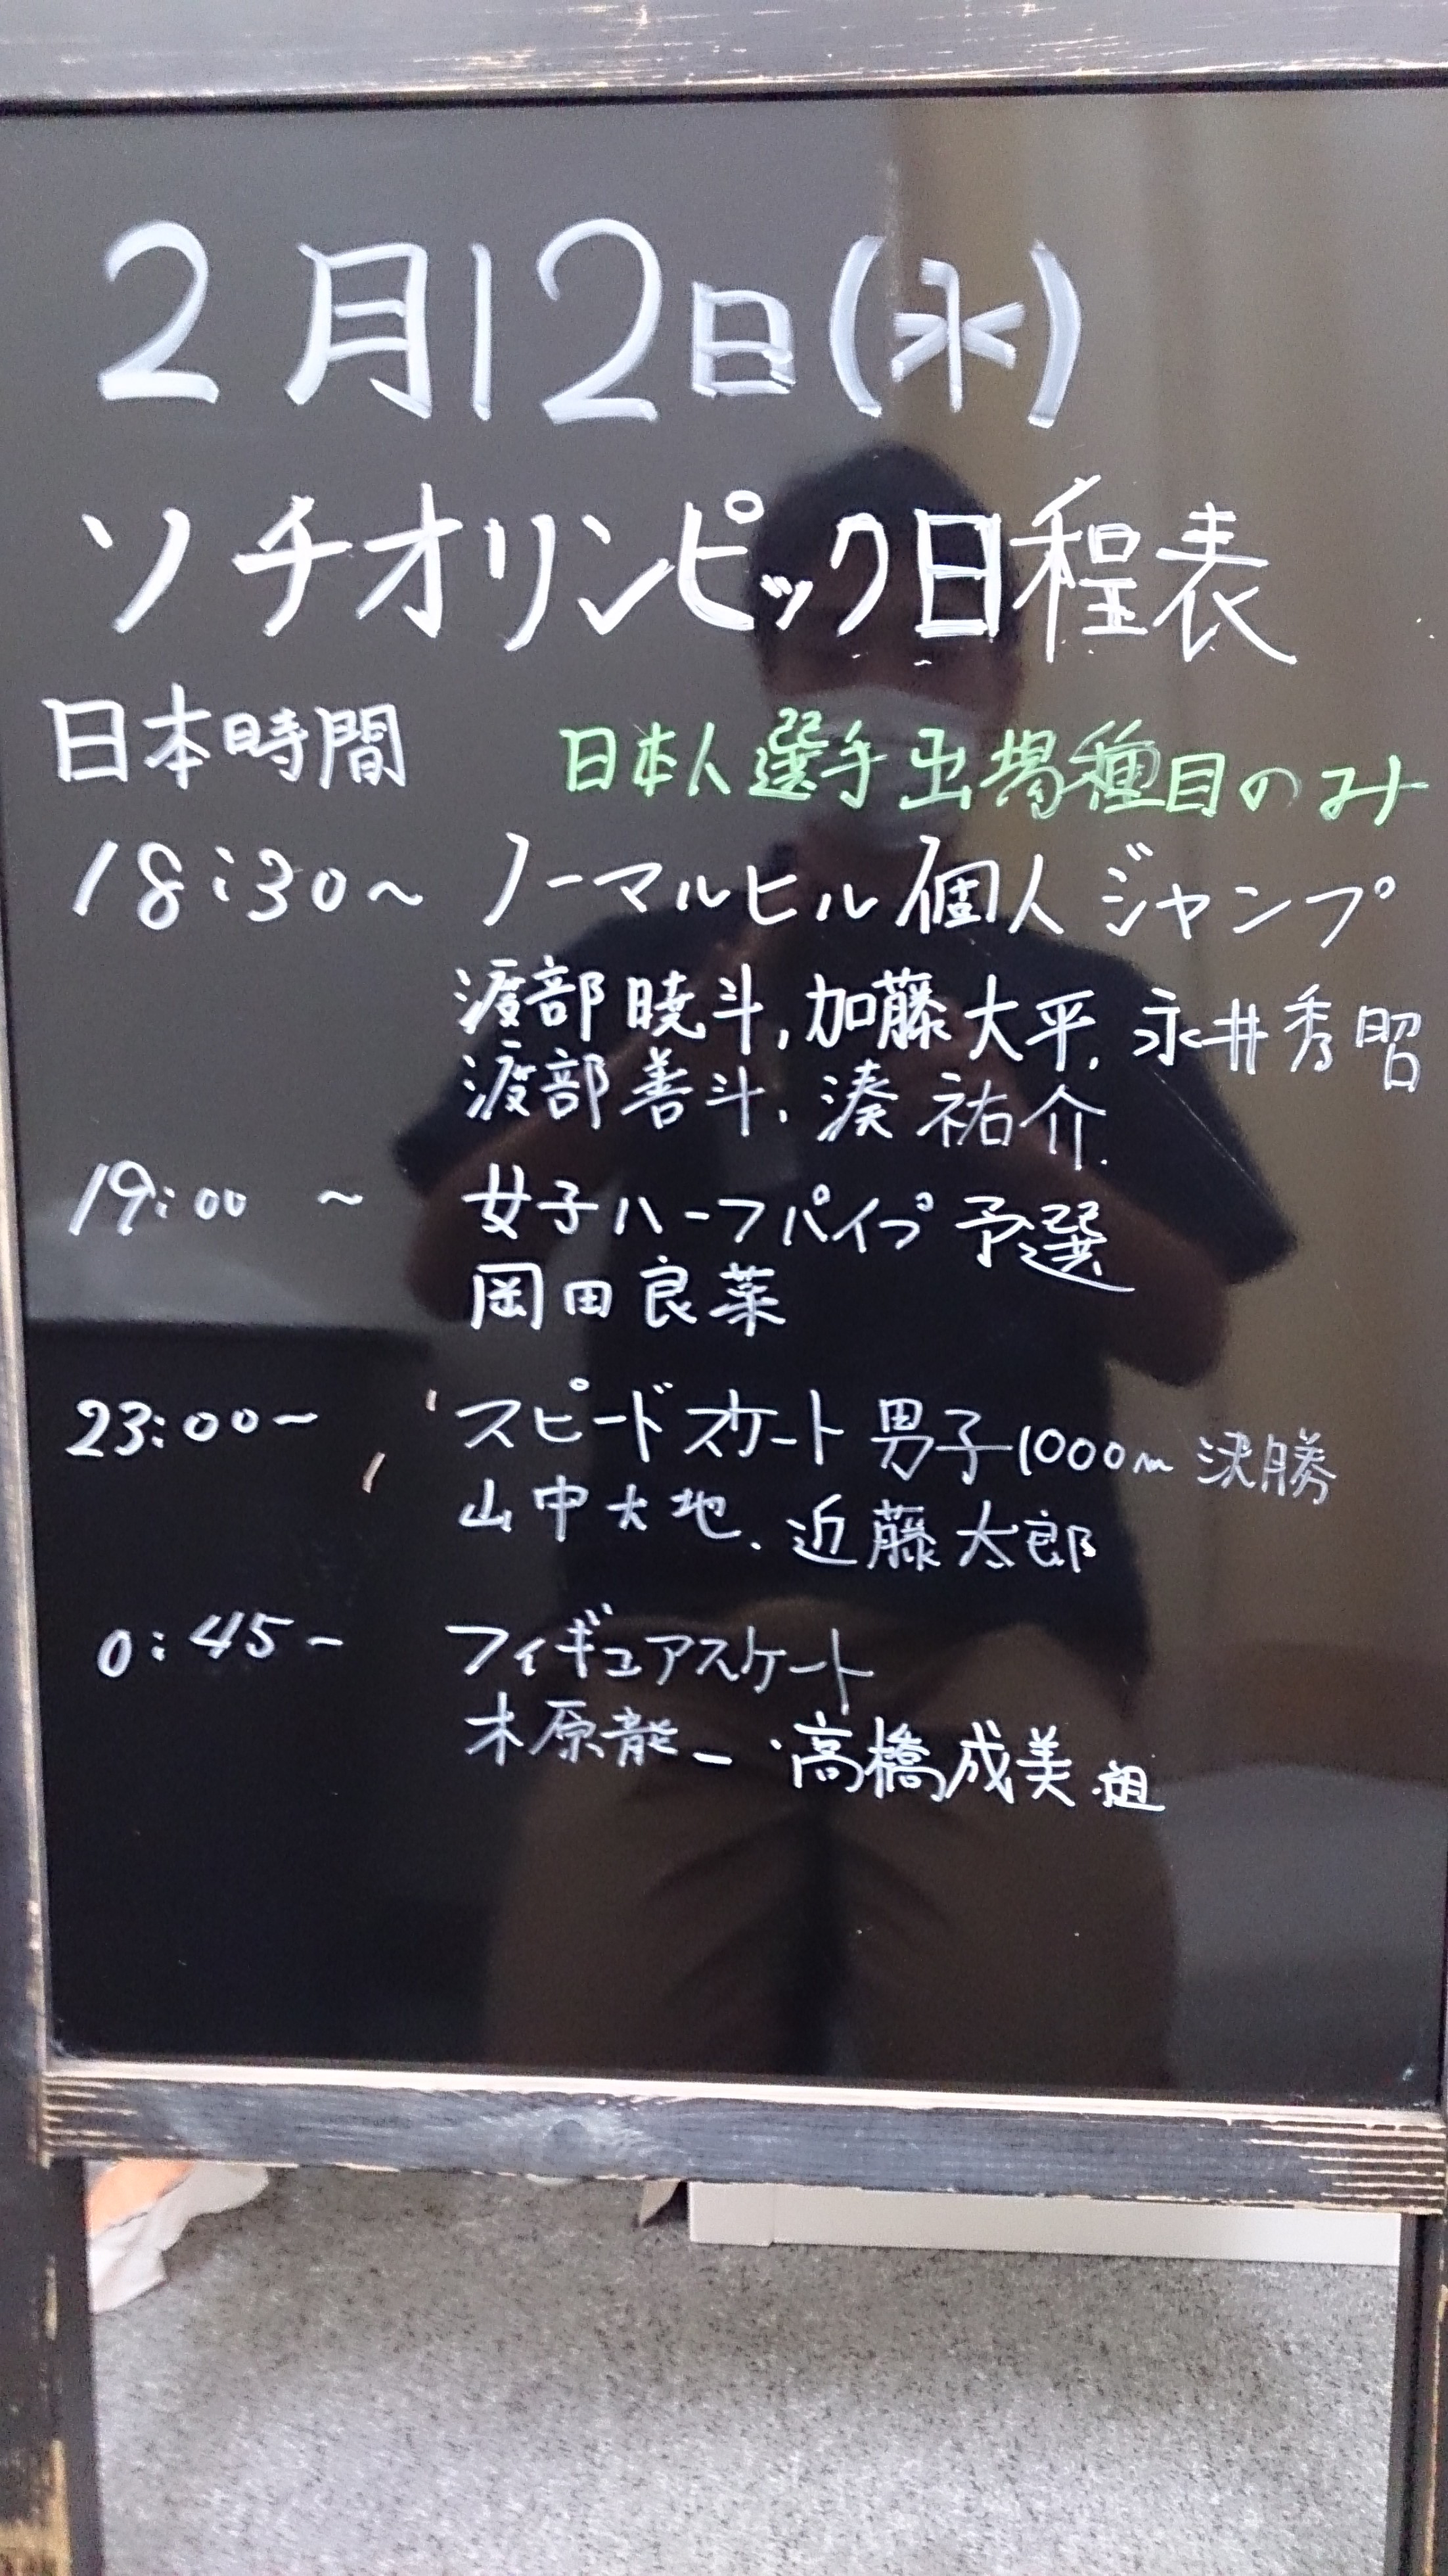 2月12日(水)
ソチオリンピック日程表
日本時間 日本人選手出場種目のみ
18:30~ ノーマルヒル個人ジャンプ
渡部暁斗,加藤大平.永井秀昭
渡部善斗.湊祐介.
19:00 ~ 女子ハーフパイプ予選
岡田良菜
23:00~ スピードスケート男子1000m決勝
山中大地.近藤太郎
0:45~ フィギュアスケート
木原龍一・高橋成美組